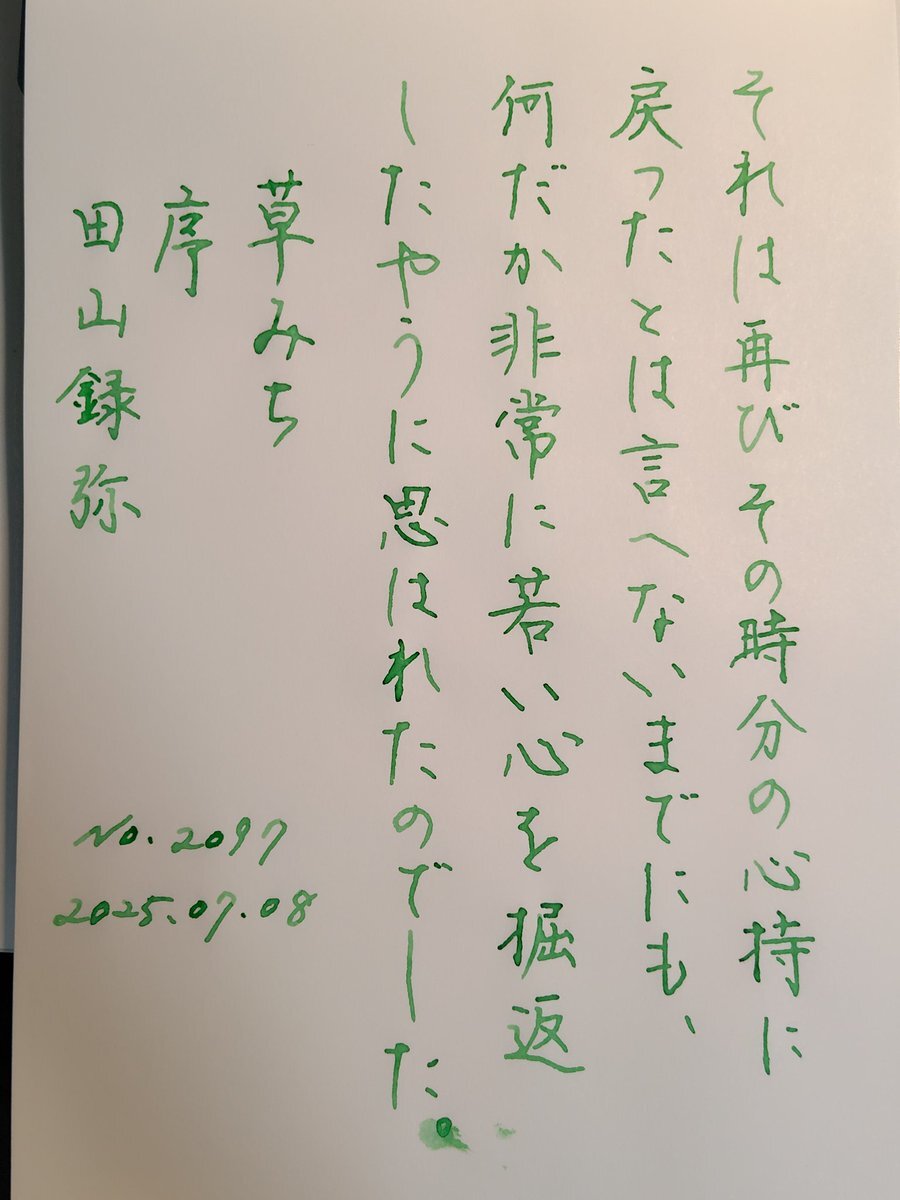 それは再びその時分の心持に
戻ったとは言へないまでにも、
何だか非常に若い心を掘返
したやうに思はれたのでした。
草みち
序
田山録弥
No.2097
2025.07.08